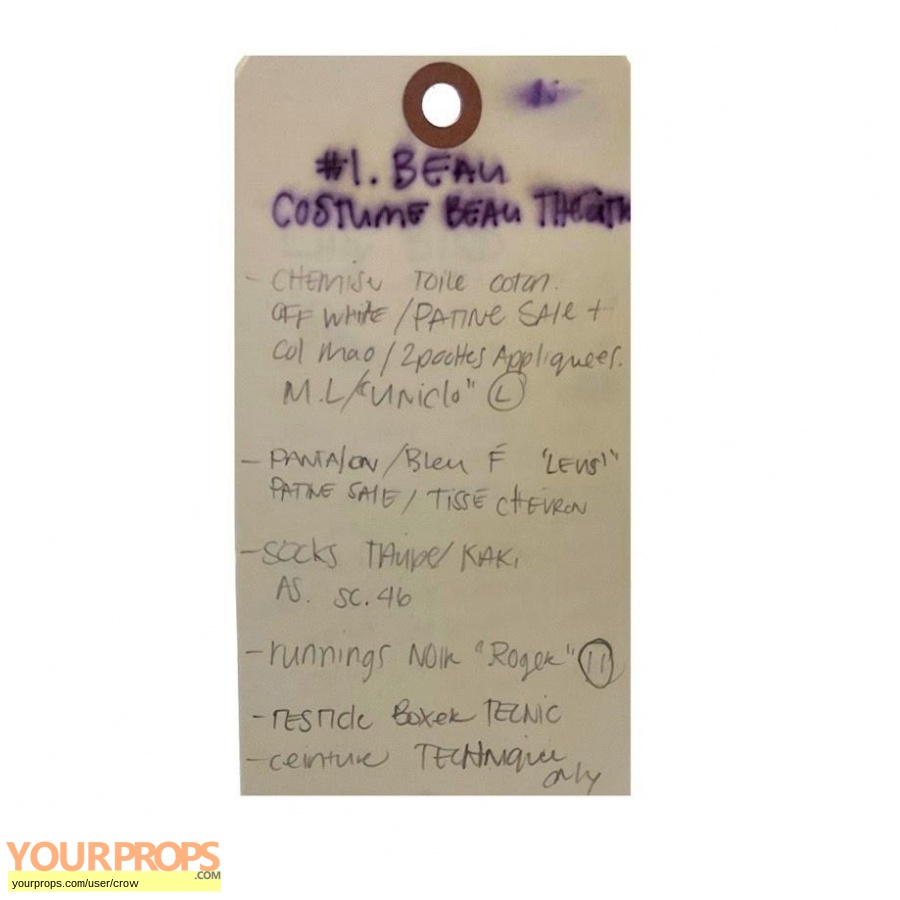 #1. BEAU
COSTUME BEAU
- CHEMISE TOILE COTON.
OFF WHITE / PATINE SALE +
COL MAO / 2 POCHES APPLIQUEES.
M.L / "UNICLO" L
- PANTALON / BLEU F "LEVIS"
PATINE SALE / TISSÉ CHEVRON
- SOCKS TAUPE / KAKI
AS. SC. 46
- RUNNINGS NOIR "ROGER" 11
- TESTICLE BOXER TECNIC
- CEINTURE TECHNIQUE
ONLY
YOURPROPS
.COM
yourprops.com/user/crow